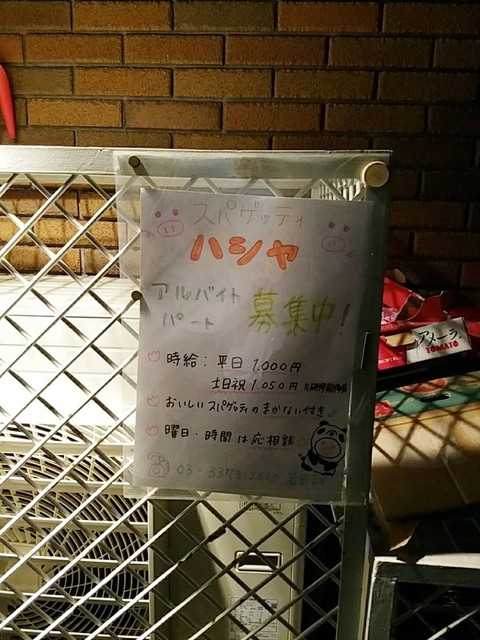 スパゲッティ
ハシヤ
アルバイト
パート
募集中!
時給:平日 1,000円
土日祝 1,050円
おいしいスパゲッティのまかない付き
曜日・時間は応相談
03-3373-2660
アメーラ
TOMATO